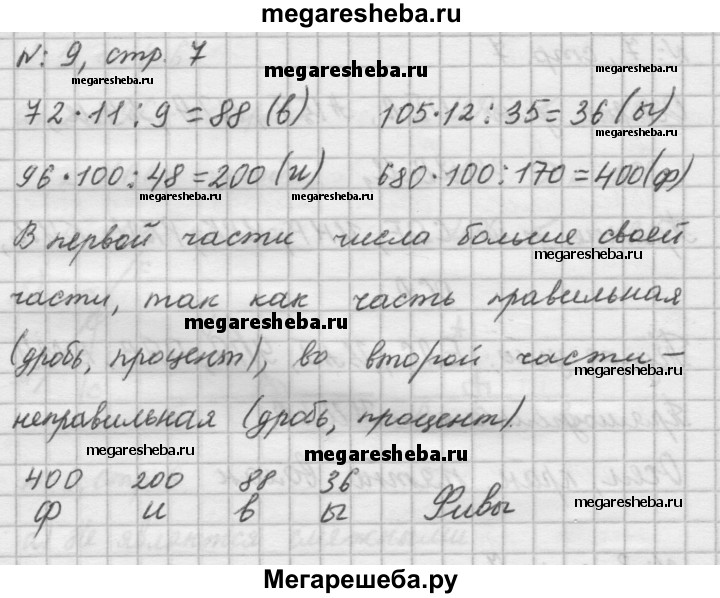 megaresheba.ru
№ 9, стр. 7
megaresheba.ru megaresheba.ru
72·11:9=88 (в) 105·12:35=36 (ы)
megaresheba.ru megaresheba.ru
96·100:48=200 (и) 680·100:170=400 (ф)
megaresheba.ru megaresheba.ru megaresheba.ru
В первой части числа больше своей
megaresheba.ru
части, так как часть правильная
megaresheba.ru
(дробь, процент), во второй части –
megaresheba.ru
неправильная (дробь, процент).
megaresheba.ru megaresheba.ru
400 200 88 36
megaresheba.ru megaresheba.ru
ф и в ы Фивы
Мегарешеба.ру